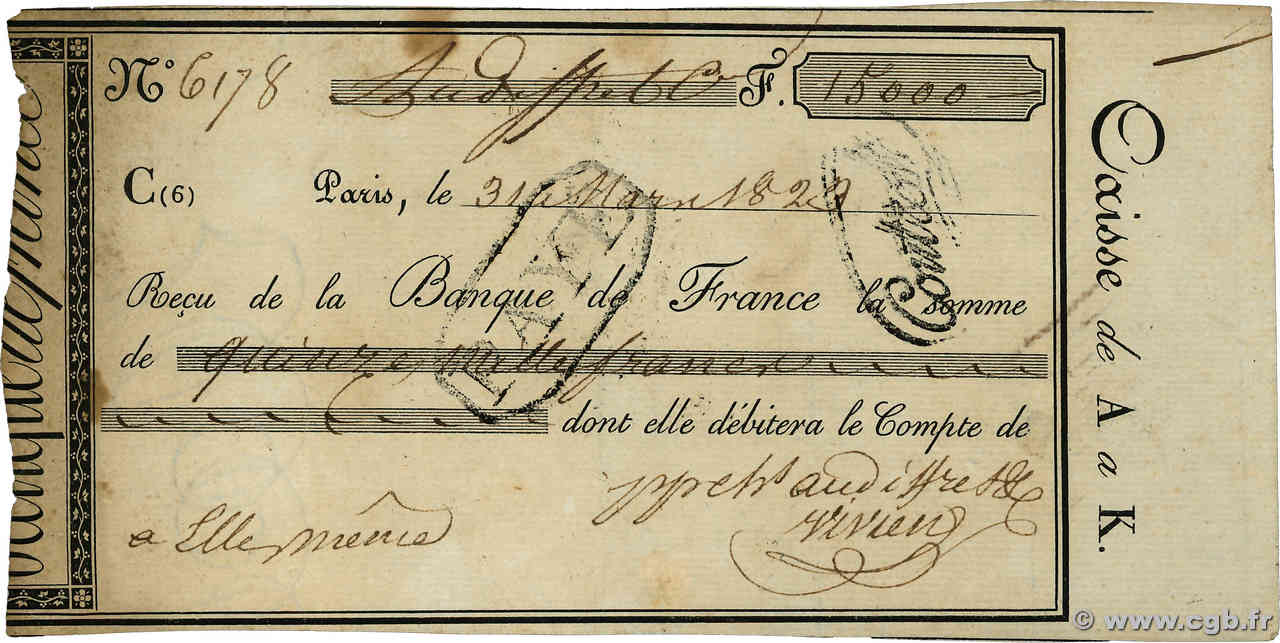 Banque de France
N° 6178 Audiffret & Cie F. 15000
C(6) Paris, le 31 Mars 1823
Reçu de la Banque de France la somme
de quinze mille francs
dont elle débitera le Compte de
audiffret & Cie
Vivien
a Elle même
PAYÉ
Contrôle
Caisse de A a K.
© www.cgb.fr